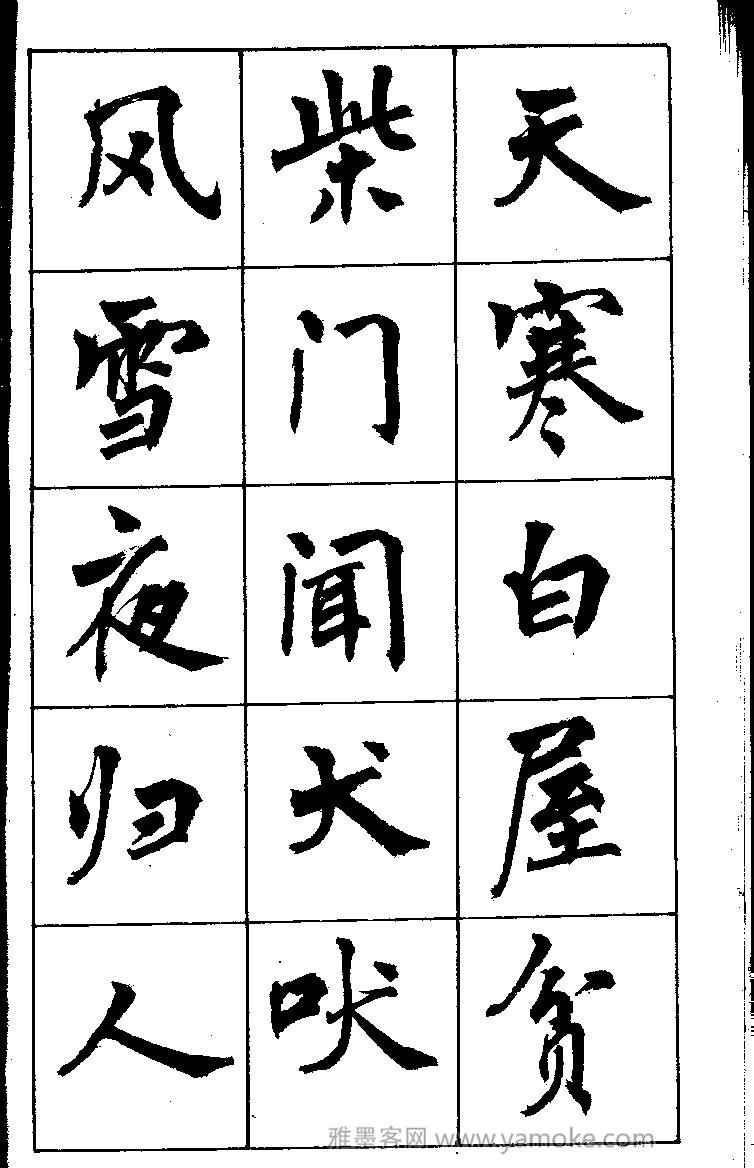 天寒白屋贫
柴门闻犬吠
风雪夜归人
雅墨客网 www.yamoke.com